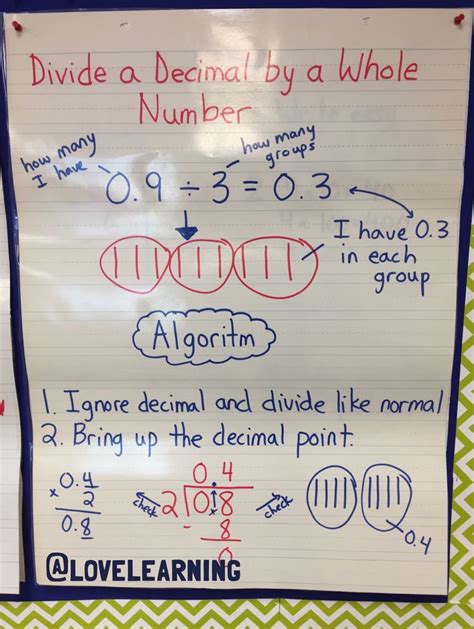 Divide a Decimal by a Whole
Number
how many
I have
how many
groups
0.9 ÷ 3 = 0.3
I have 0.3
in each
group
Algoritm
1. Ignore decimal and divide like normal
2. Bring up the decimal point.
0.4
x 2
0.8
check
0.4
2 0.8
- 8
0
check
0.4
@LOVELEARNING